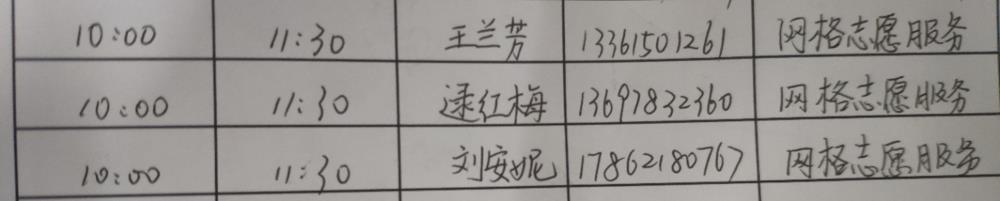 10:00 11:30 王兰芳 13361501261 网格志愿服务
10:00 11:30 逯红梅 13697832360 网格志愿服务
10:00 11:30 刘安妮 17862180767 网格志愿服务